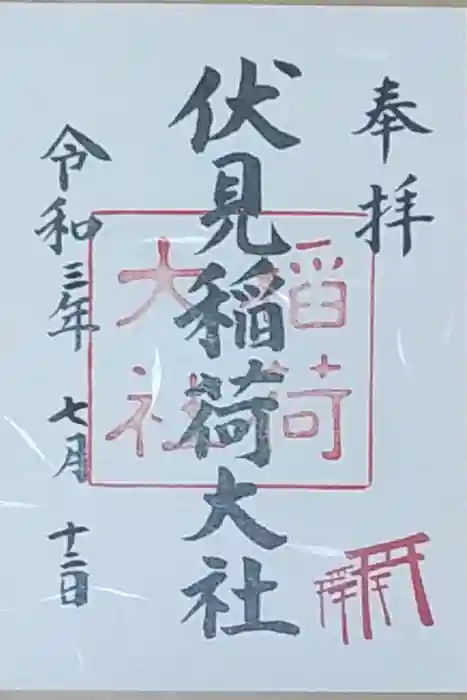 奉拝
伏見稲荷大社
稲荷
大社
令和三年七月十二日